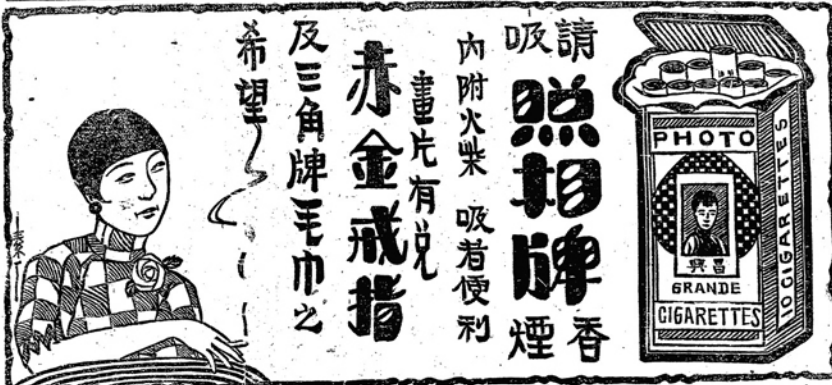 請吸
照相牌
香煙
內附火柴 吸者便利
畫片有兌
赤金戒指
及三角牌毛巾之
希望
PHOTO
昌興
GRANDE
CIGARETTES
10 CIGARETTES